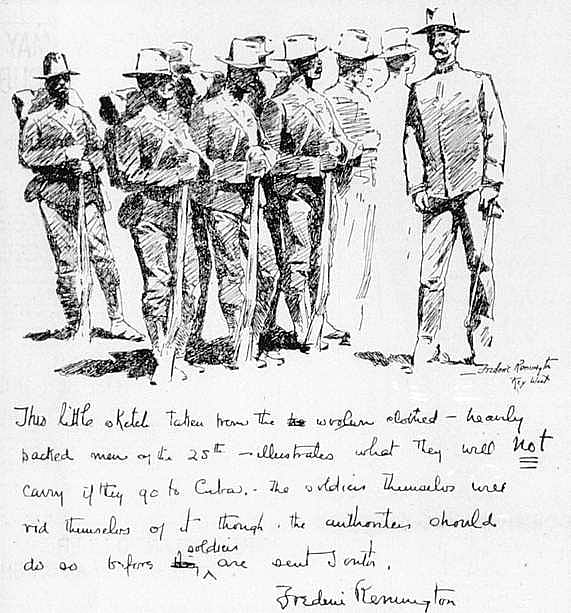 Frederic Remington
Key West
This little sketch taken from the woolen clothed - heavily
packed men of the 25th - illustrates what they will not
carry if they go to Cuba. - The soldiers themselves will
rid themselves of it though. the authorities should
do so before soldiers are sent South.
Frederic Remington